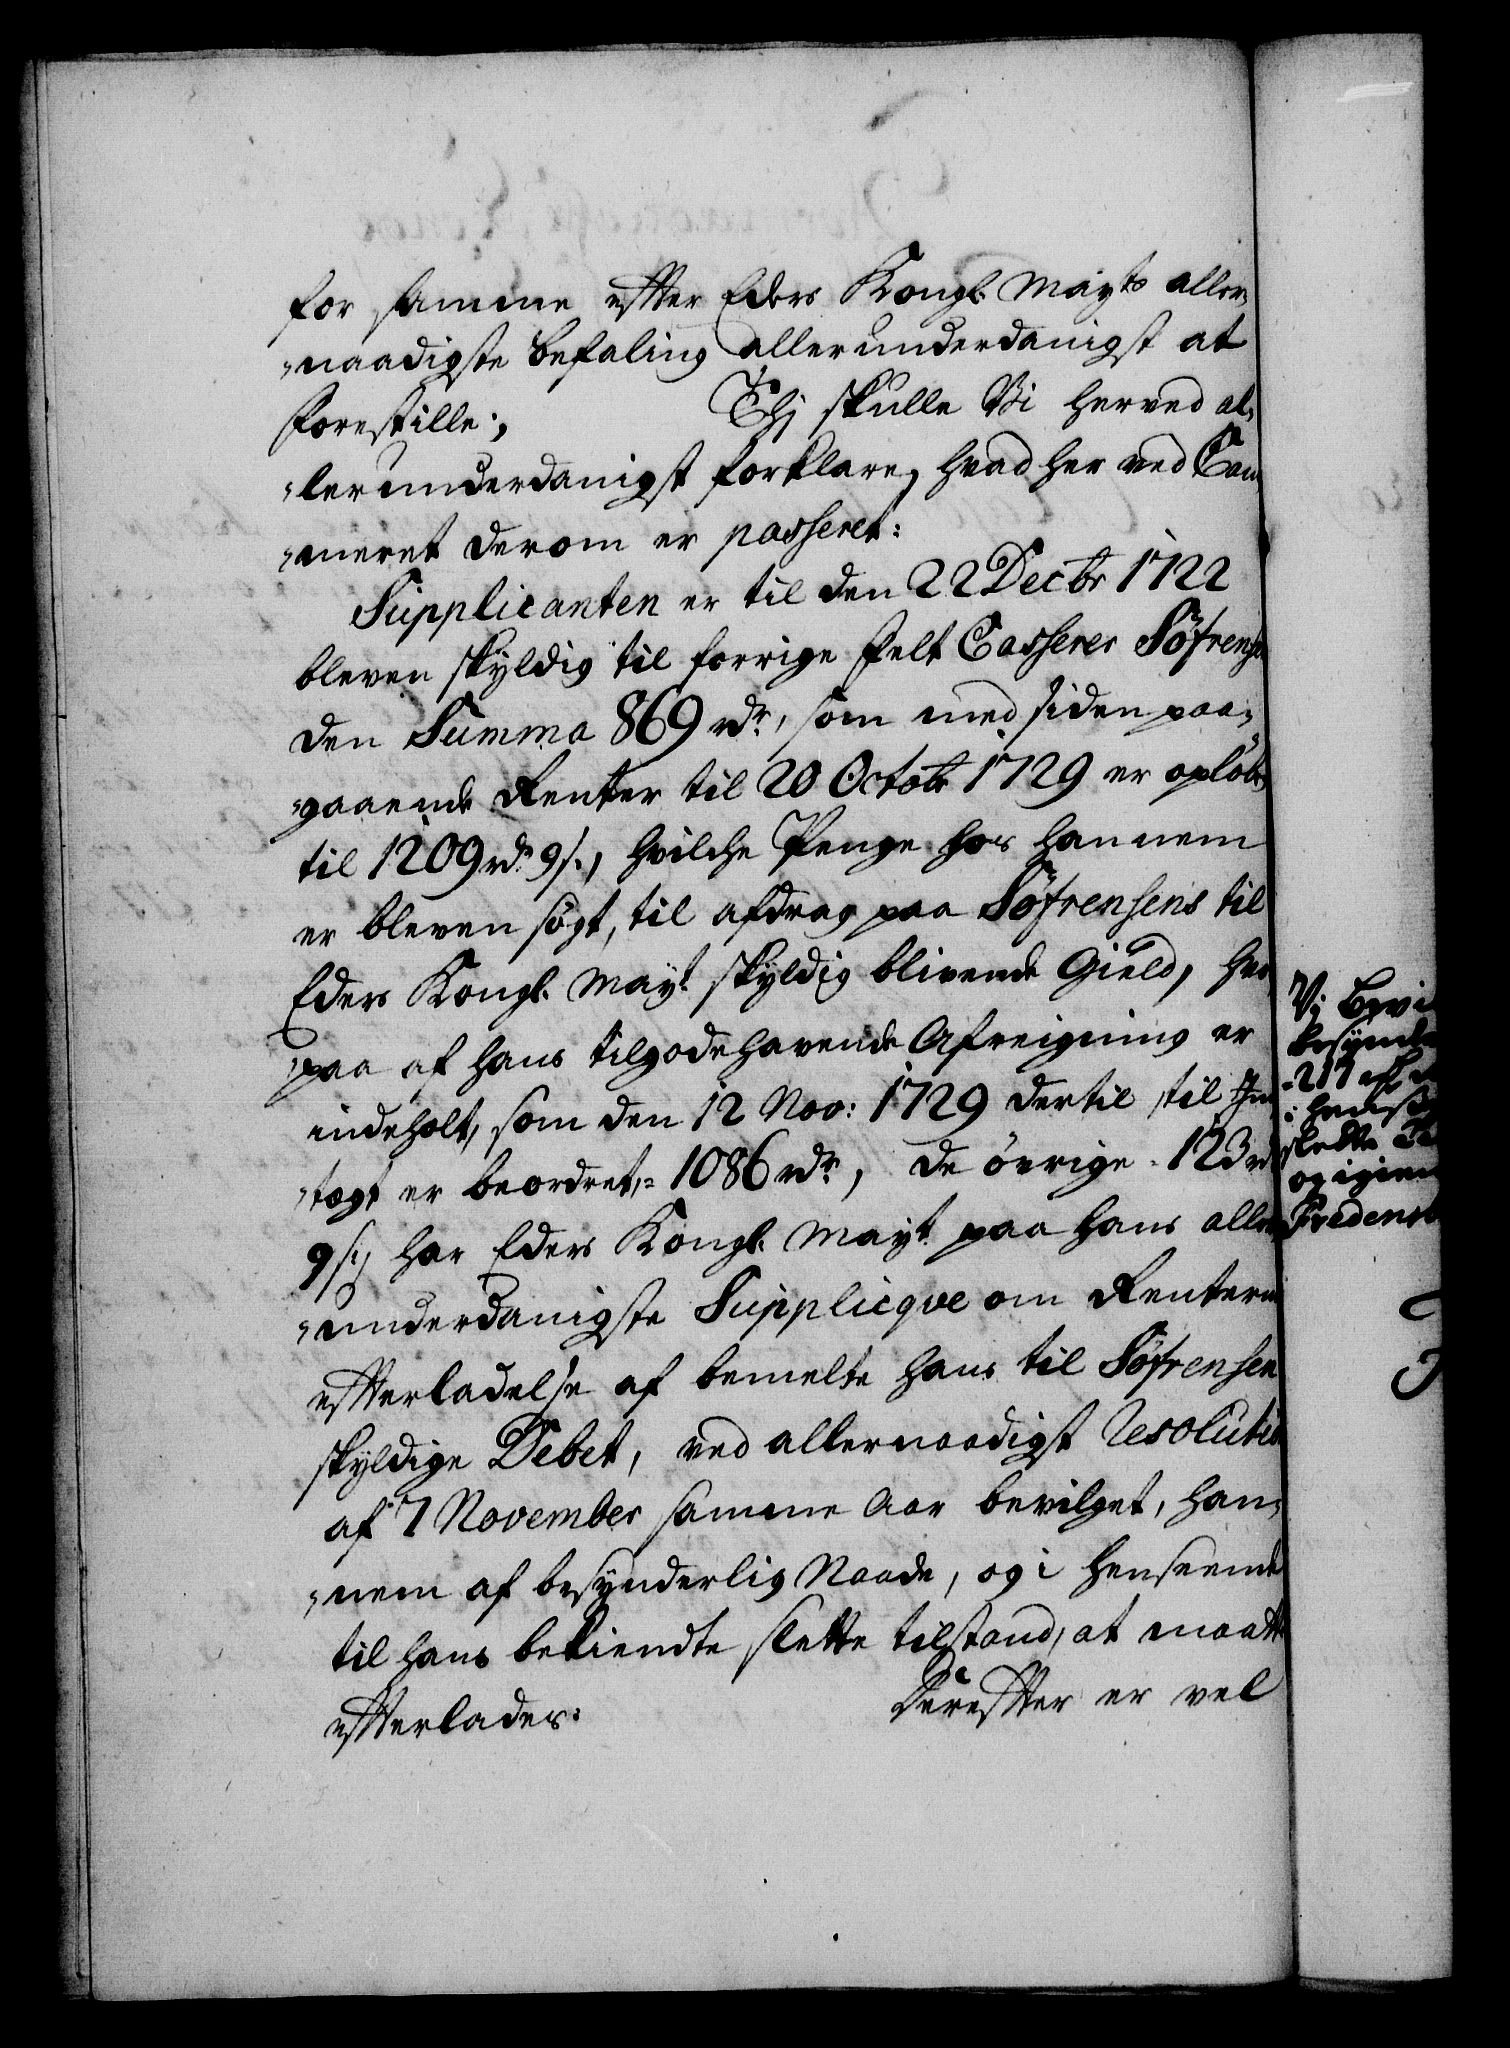 for samme efter Eders Kongl. Mayts aller-
naadigste Befaling allerunderdanigst at
forestille:, Thj skulle Vi herved al-
lerunderdanigst forklare, hvad her ved Cam
meret derom er passeret:
Supplicanten er til den 22 Decbr 1722
bleven skyldig til forrige felt Casserer Söfrensen
den Summa 869 rdr, som med siden paa-
gaaende Renter til 20 Octobr 1729 er opløbe
til 1209 rdr 9 s:, hvilche Penge hos hannem
er bleven søgt, til afdrag paa Söfrensens til
Eders Kongl. Mayt. skyldig blivende Gield, hvor
paa af hans tilgodehavende Afreigning er
indeholt, som den 12 Nov: 1729 dertil til Ind
tægt er beordret, 1086 rdr, de øvrige 123 rd
9 s:, har Eders Kongl. Mayt. paa hans aller
underdanigste Supplicqve om Renternes
efterladelse af bemelte hans til Söfrensen
skyldige Debet, ved allernaadigst Resolution
af 7 November samme Aar bevilget, han-
nem af besynderlig Naade, og i henseende
til hans bekiendte slette tilstand, at maatte
efterlades: Derefter er vel
Vj Bevi
besynde
217
slette
og igien
Fredensb